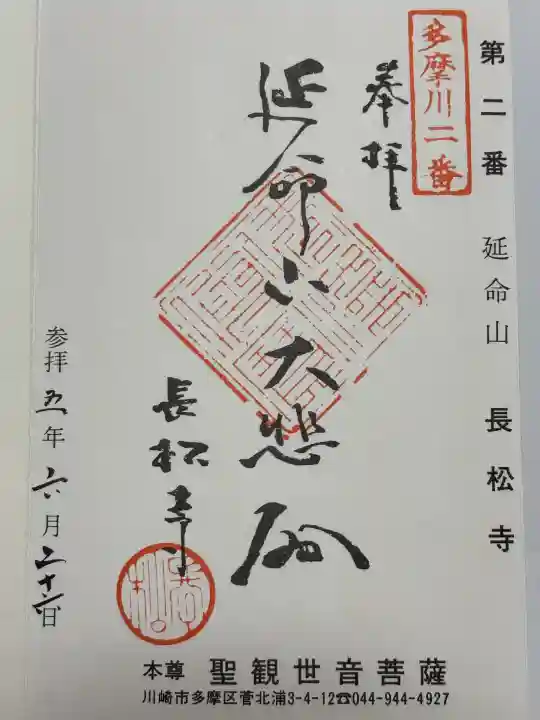 第二番 延命山 長松寺
多摩川二番
奉拝
延命山大悲殿
長松寺
参拝 五年 六月 二十六日
本尊 聖観世音菩薩
川崎市多摩区菅北浦3-4-12☎044-944-4927